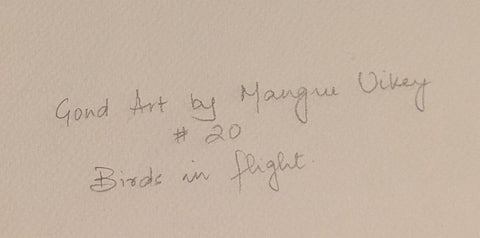 Gond Art by Mangru Uikey
# 20
Birds in flight.